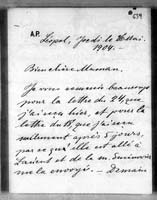 639
A.P.
Lépol, Jeudi le 26 Mai.
1904.
Bien chère Maman.
Je vous remercie beaucoup
pour la lettre du 24, que
j'ai reçu hier, et pour la
lettre du 18, que j'ai reçu
seulement après 5 jours,
parce qu'elle est allé à
et de la m.
me la envoyé. — Demain